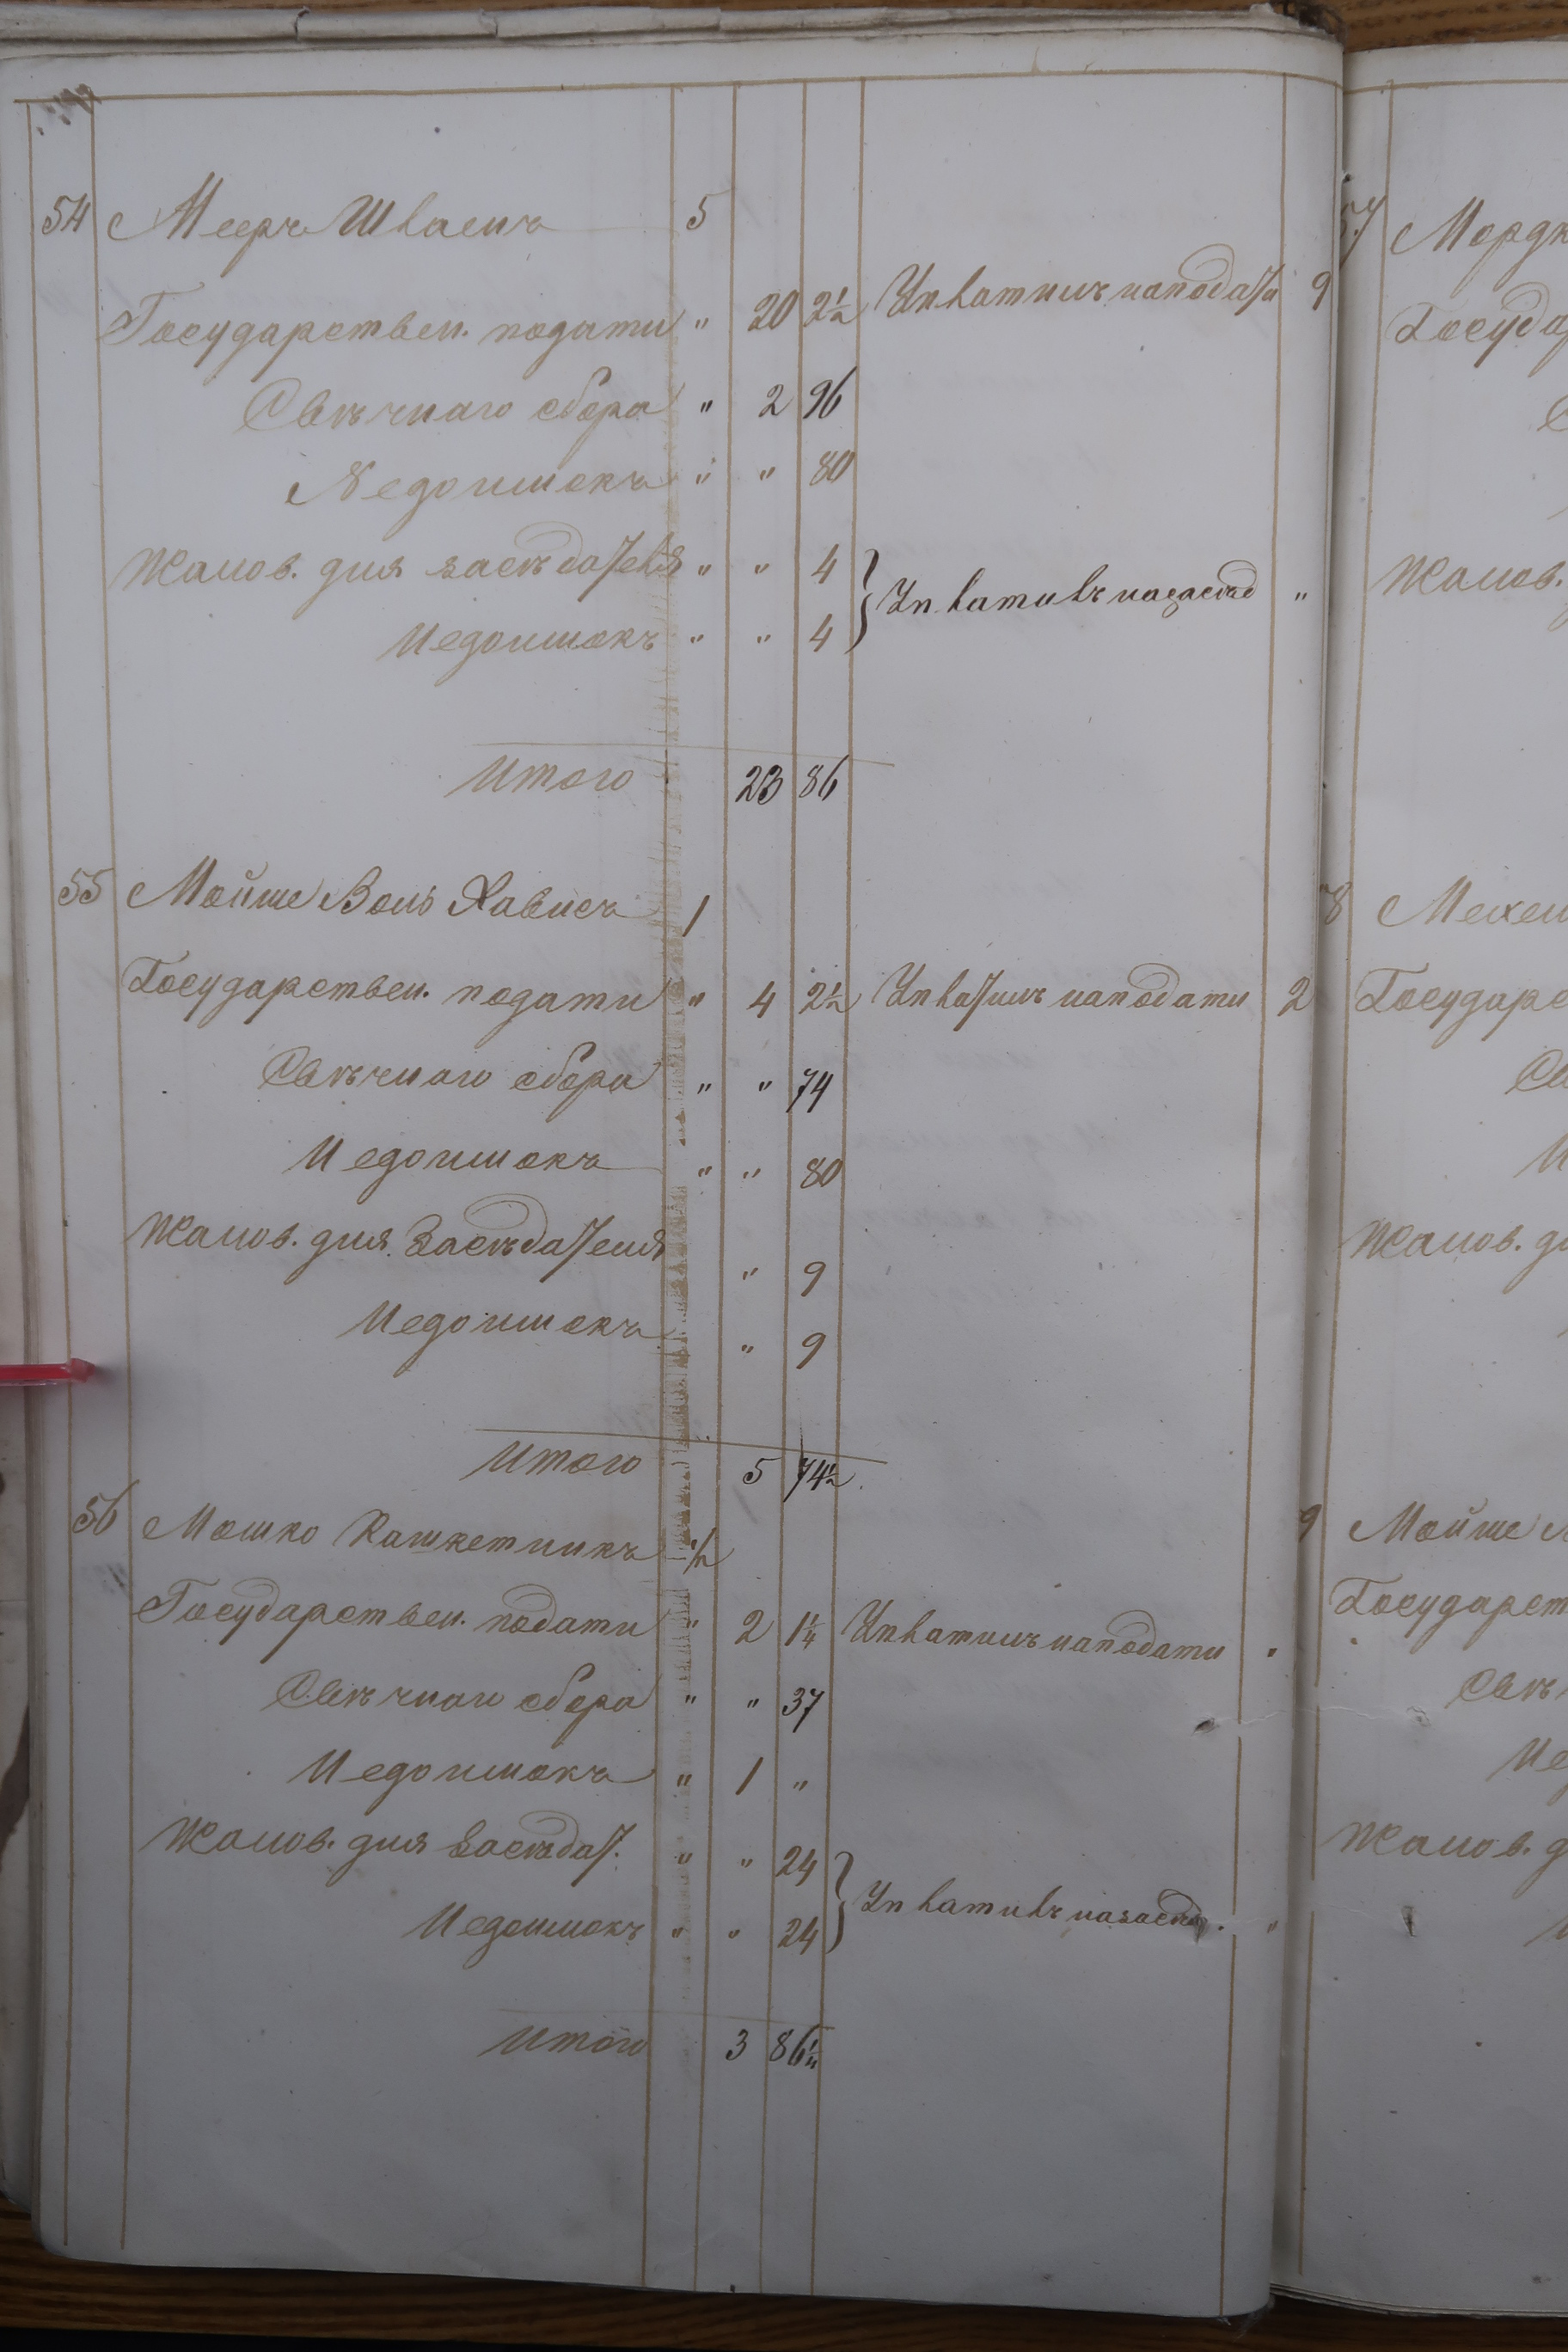 54 Мееръ Шваецъ 5
Государствен. подати " 20 2½ Уплатилъ наподати 9
Свѣчнаго сбора " 2 96
Недоимокъ " " 80
Жалов. для засѣдателя " " 4
Недоимокъ " " 4 } Уплатилъ назасѣд "
Итого 23 86
55 Мойше Воль 1
Государствен. подати " 4 2½ Уплатилъ наподати 2
Свѣчнаго сбора " " 74
Недоимокъ " " 80
Жалов. для Засѣдателя " 9
Недоимокъ " 9
Итого 5 74½
56 Мошко Кашкетникъ ½
Государствен. подати " 2 1¼ Уплатилъ наподати "
Свѣчнаго сбора " " 37
Недоимокъ " 1 "
Жалов. для Засѣдат. " " 24
Недоимокъ " " 24 } Уплатилъ назасѣд. "
Итого 3 86¼
57 Мордк
Госуда
С
Жалов.
8 Мехел
Государс
Св
Н
Жалов. дл
9 Мойше
Государст
Свѣч
Не
Жалов. д
Н